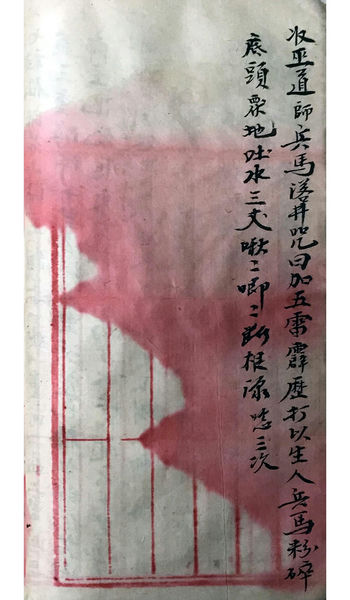 收巫道師兵馬落井咒曰加五雷霹歷打以生人兵馬粉碎
底頭眾地吐水三丈啾〻唧〻斷根源 念三次